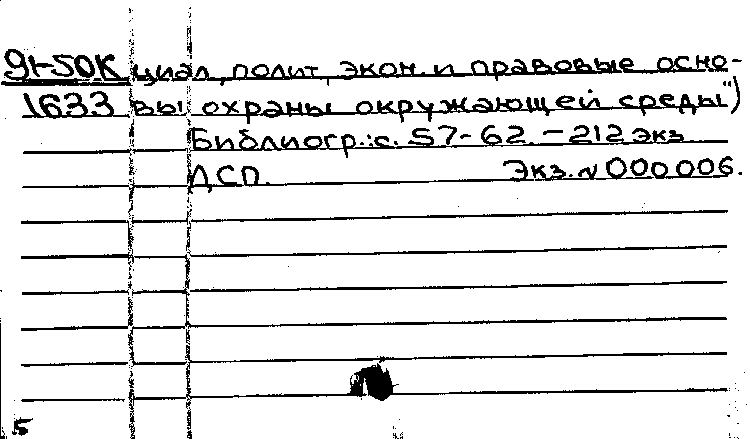 91-50К циал, полит, экон. и правовые осно-
1633 вы охраны окружающей среды")
Библиогр.: с. 57-62. - 212 экз
ДСП. Экз. № 000006.
5